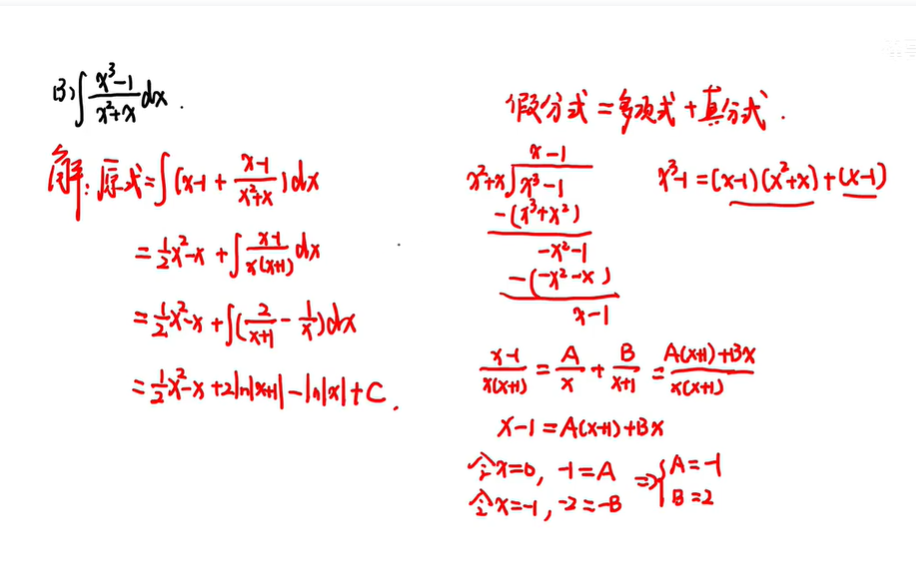 (3) ∫ (x³-1)/(x²+x) dx .
解: 原式 = ∫ (x-1 + (x-1)/(x²+x)) dx
= ½x²-x + ∫ (x-1)/(x(x+1)) dx
= ½x²-x + ∫ (2/(x+1) - 1/x) dx
= ½x²-x + 2ln|x+1| - ln|x| + C .
假分式 = 多项式 + 真分式 .
x-1
x²+x ) x³-1
-(x³+x²)
-x²-1
-(-x²-x)
x-1
x³-1 = (x-1)(x²+x) + (x-1)
(x-1)/(x(x+1)) = A/x + B/(x+1) = (A(x+1)+Bx)/(x(x+1))
x-1 = A(x+1)+Bx
令x=0, -1=A
令x=-1, -2=-B
⇒ { A=-1
B=2